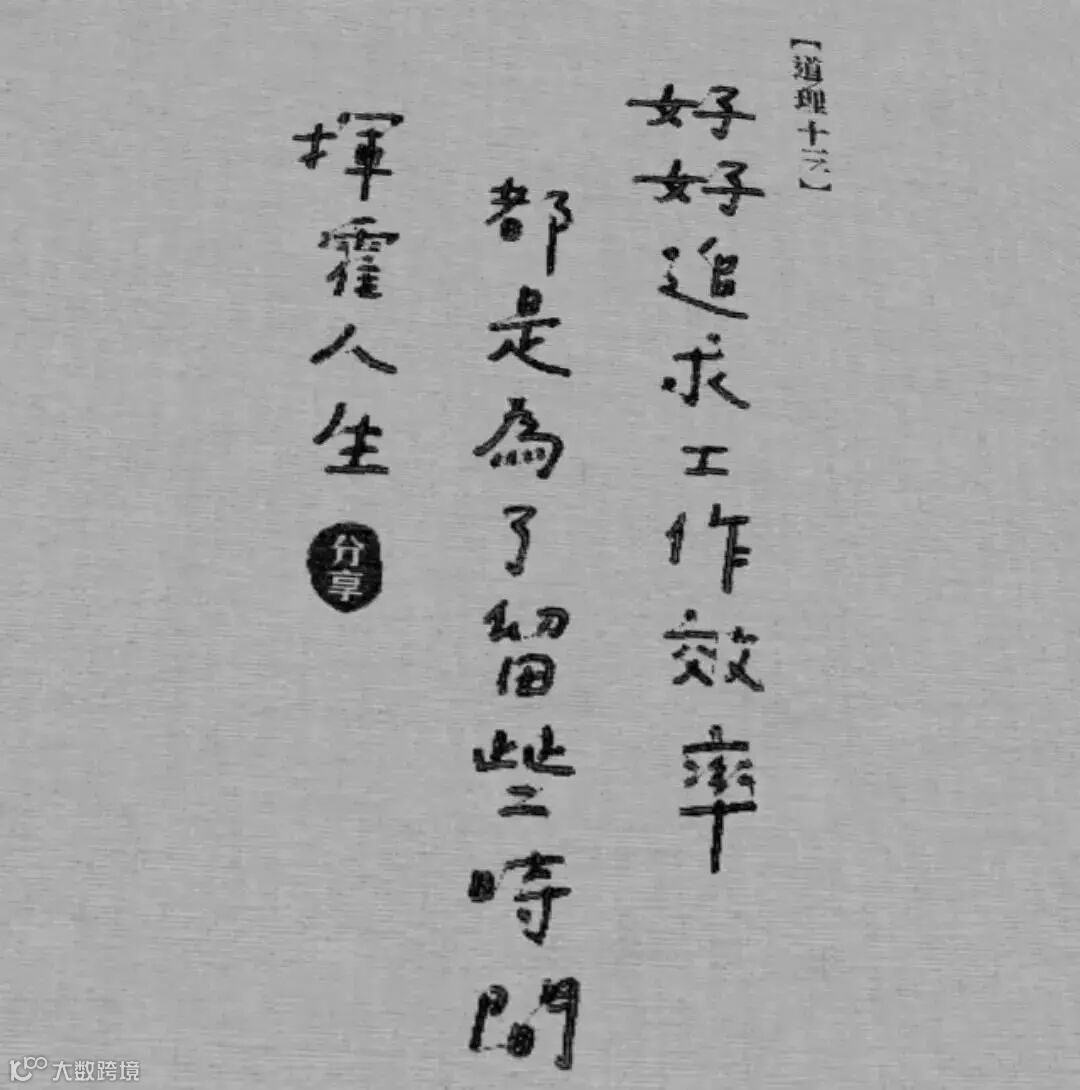 【道理十六】
好好追求工作效率
都是為了留些時間
揮霍人生
分享
大数跨境